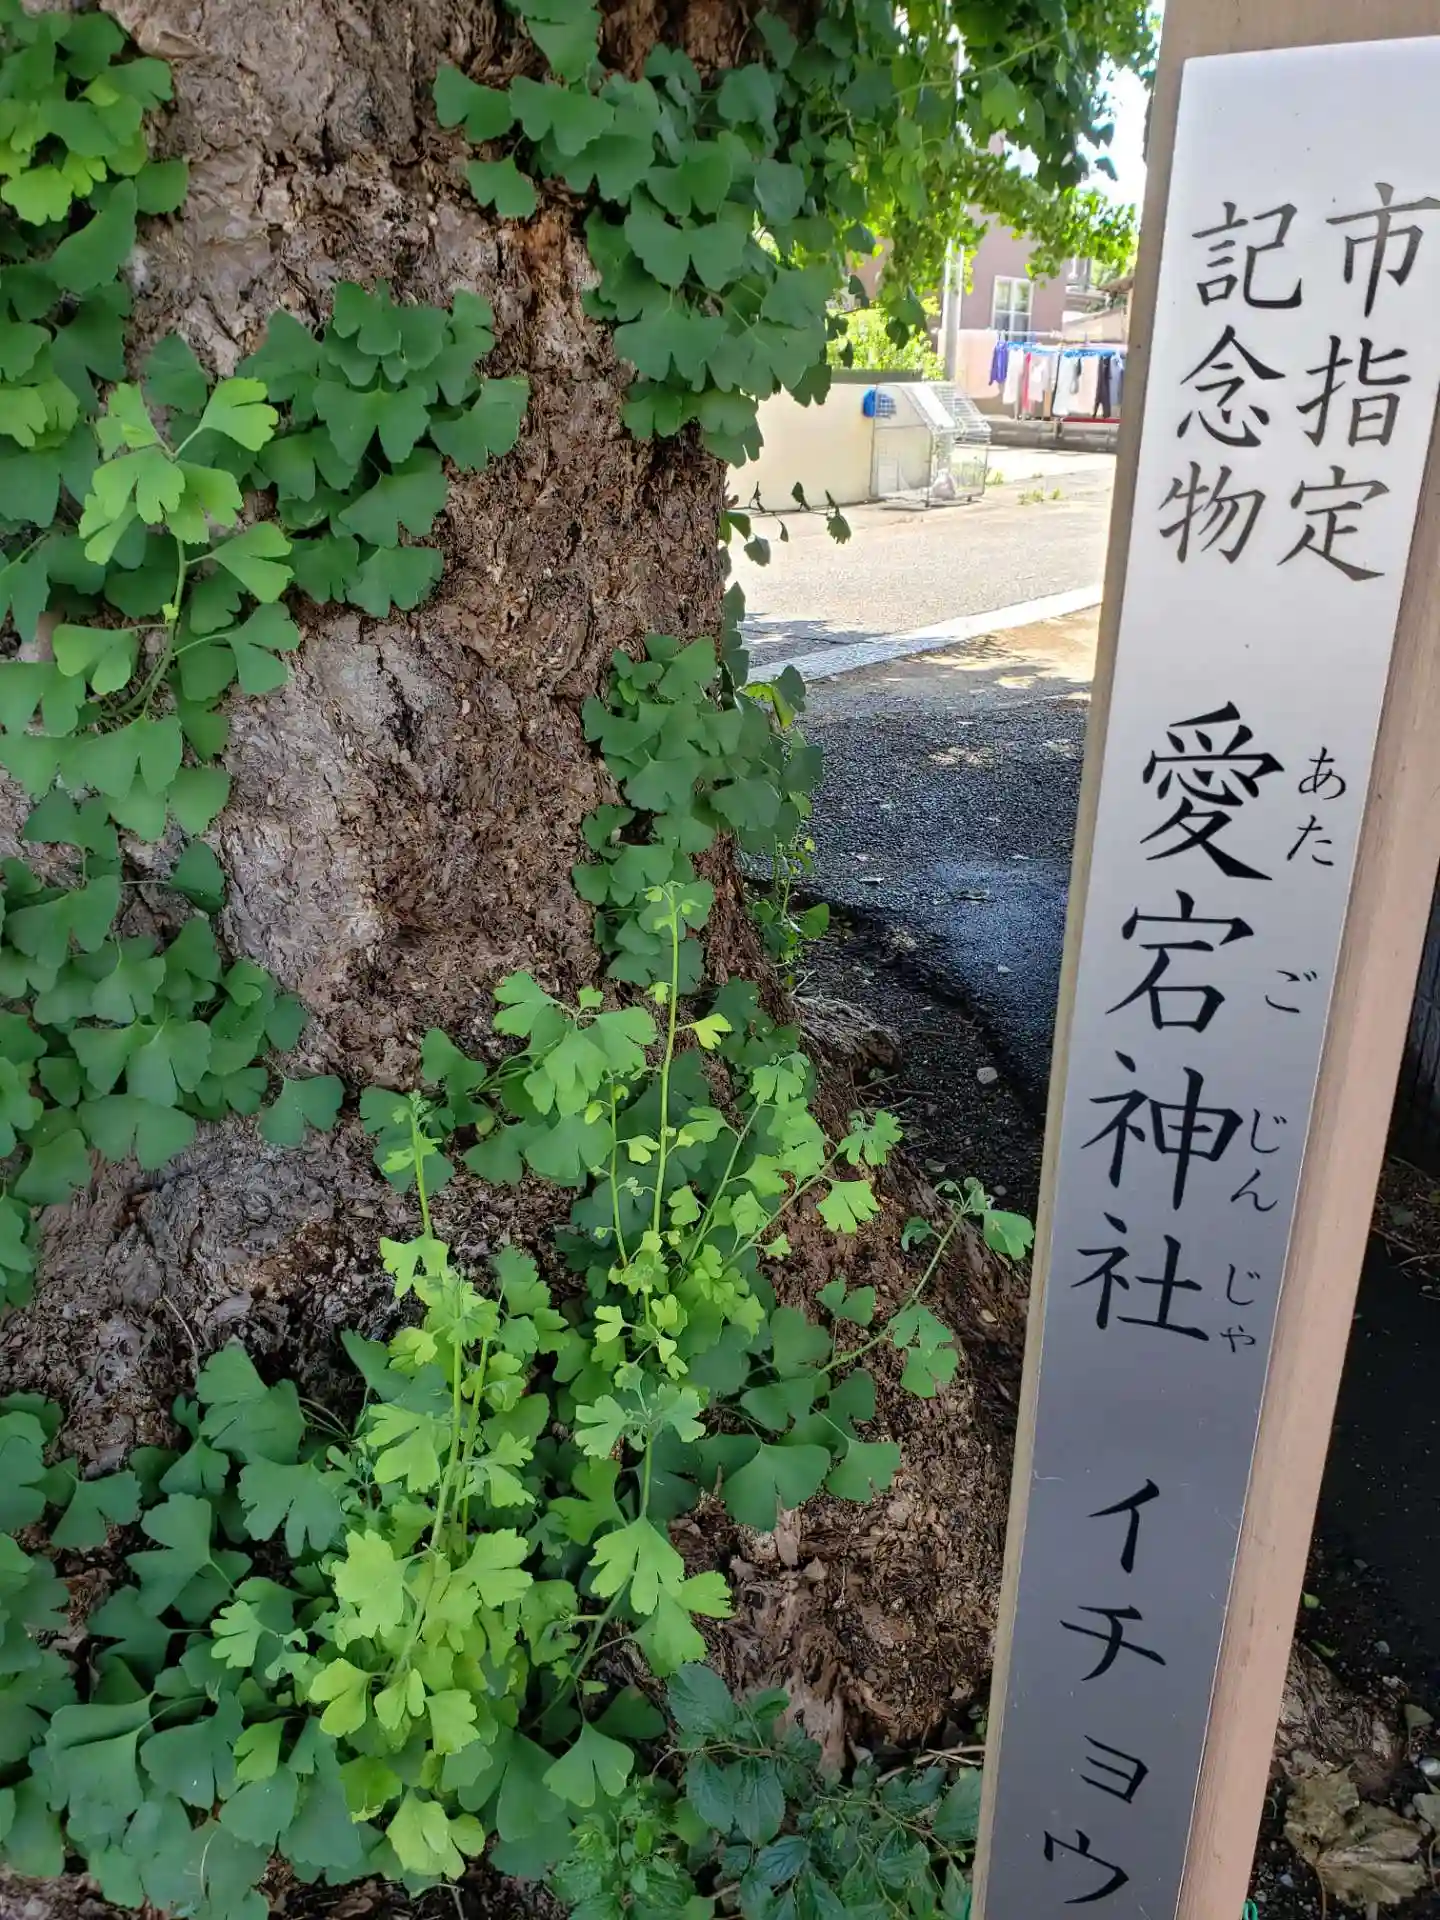 市指定
記念物
愛宕神社
あたごじんじゃ
イチョウ